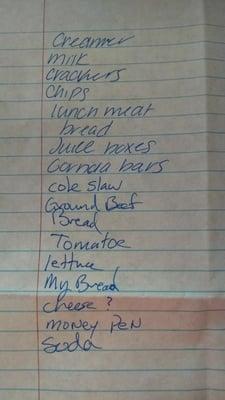 creamer
milk
crackers
chips
lunch meat
bread
Juice boxes
Gornola bars
cole slaw
Ground Beef
Bread
Tomatoe
lettuce
My Bread
cheese?
money Pen
Soda